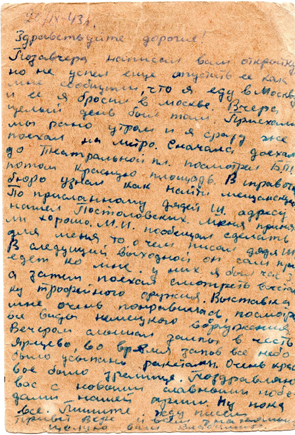 IX-43г.
Здравствуйте дорогие!
Позавчера написал вам открытку
но не успел еще опустить ее как
мне сообщили, что я еду в Москву
и ее я бросил в Москве. Вчера
целый день был там. Приехали
мы рано утром и я сразу же
поехал на метро. Сначала доехал
до Театральной пл. посмотрел Б.Т.,
потом Красную площадь. В справочн.
бюро узнал как найти Мещанскую
По присланному дядей Ш. адресу
нашел Постоловских. Меня приня-
ли хорошо. М.И. пообещал сделать
для меня то о чем писал дядя Ш.
В следующий выходной он
едет ко мне. У них я был час,
а затем поехал смотреть выстав-
ку трофейного оружия. Выставка
мне очень понравилась, посмотрел
все виды немецкого вооружения.
Вечером слышал залпы в честь
во время залпов все небо
было усыпано ракетами. Очень краси-
вое было зрелище. Поздравляю
вас с новыми славными побе-
дами нашей армии. Ну пока
все. Пишите. Жду писем
Привет всем
Целую вас